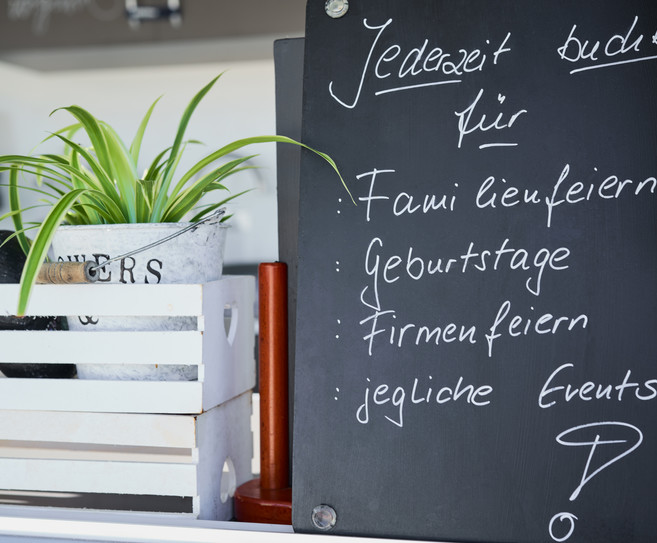 Jederzeit buch
für
: Familienfeiern
: Geburtstage
: Firmenfeiern
: jegliche Events
!
WERS
&